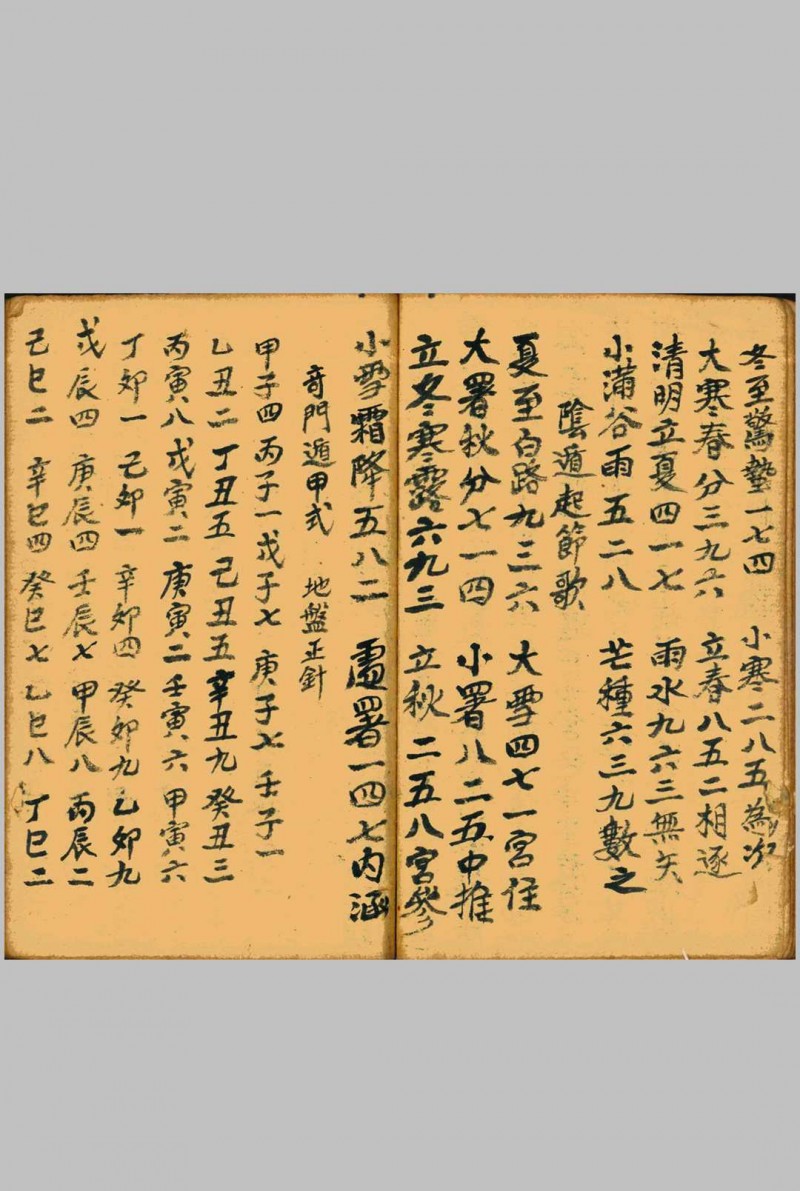 冬至驚蟄一七四　小寒二八五為次
大寒春分三九六　立春八五二相逐
清明立夏四一七　雨水九六三無矢
小滿谷雨五二八　芒種六三九數之
陰遁起節歌
夏至白路九三六　大雪四七一宮住
大署秋分七一四　小署八二五中推
立冬寒露六九三　立秋二五八宮參
小雪霜降五八二　處署一四七內涵
奇門遁甲式　地盤正針
甲子四丙子一戊子七　庚子七　壬子一
乙丑二丁丑五　己丑五辛丑九癸丑三
丙寅八戊寅二　庚寅二壬寅六甲寅六
丁卯一　己卯一　辛卯四　癸卯九乙卯九
戊辰四　庚辰四壬辰七　甲辰八　丙辰二
己巳二　辛巳四　癸巳七　乙巳八　丁巳二